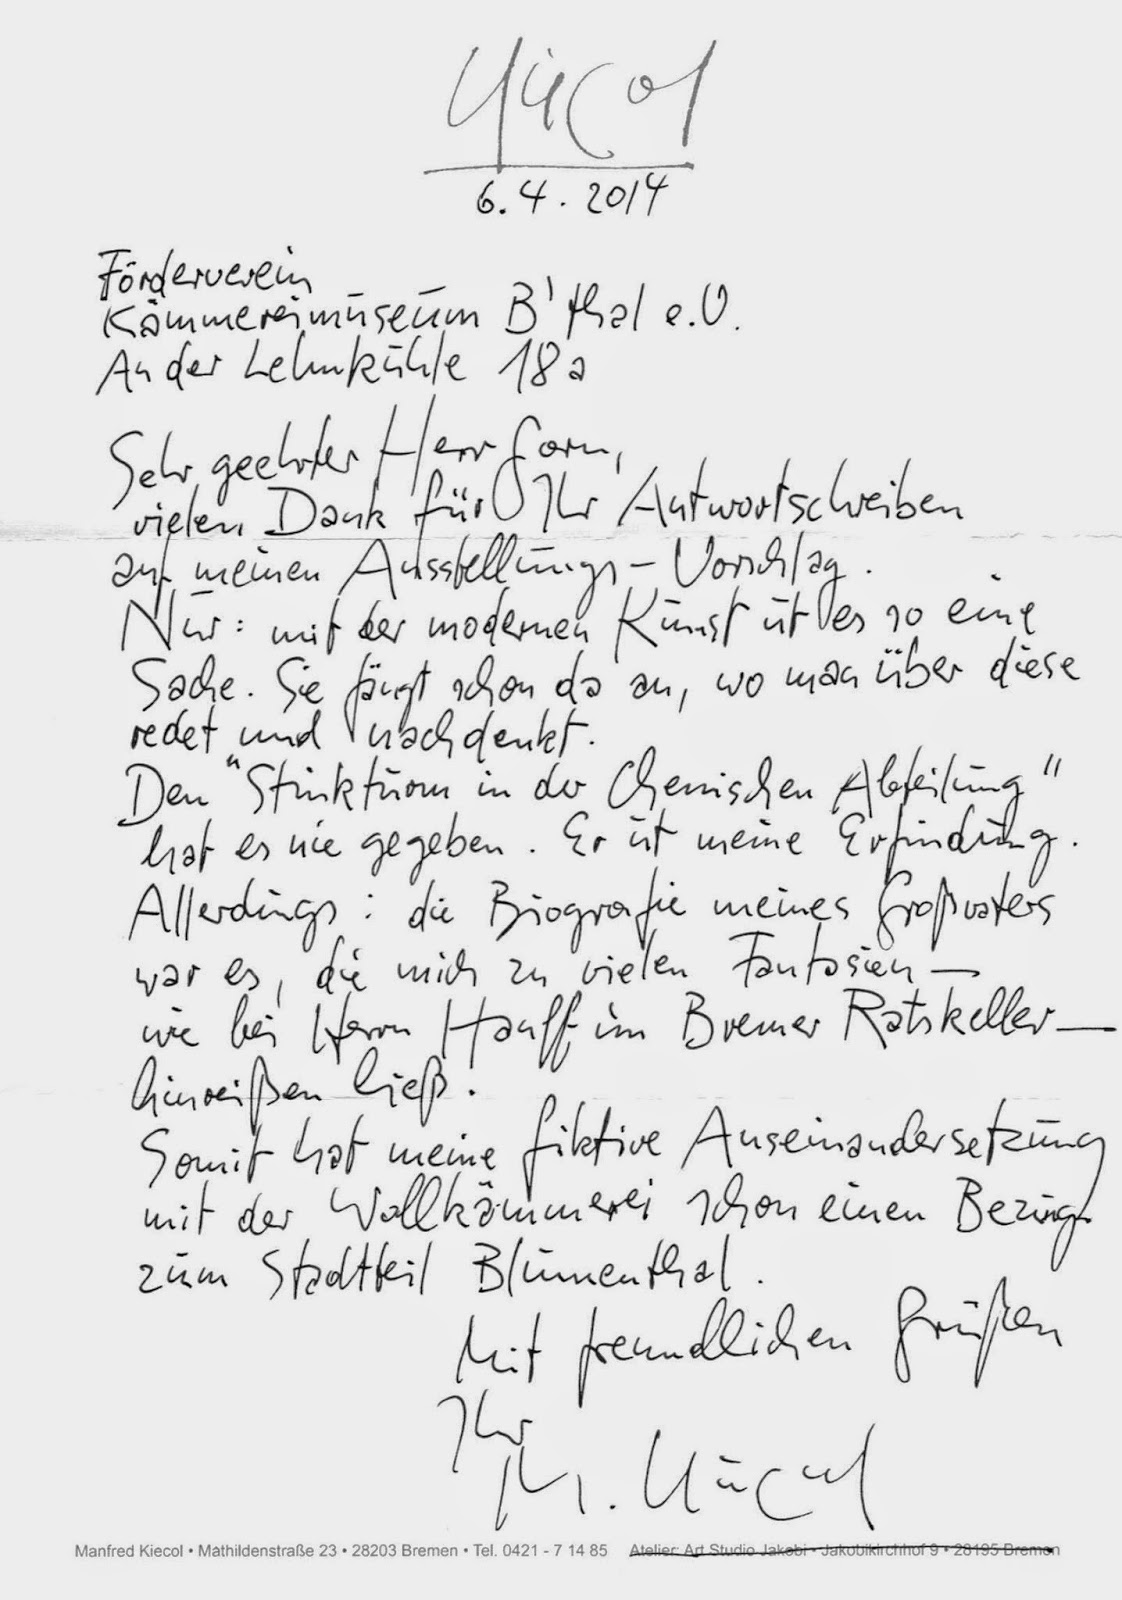 Kiecol
6.4.2014
Förderverein
Kämmereimuseum B'thal e.V.
An der Lehmkuhle 18a
Sehr geehrter Herr Gorn,
vielen Dank für Ihr Antwortschreiben
auf meinen Ausstellungs-Vorschlag.
Nur: mit der modernen Kunst ist es so eine
Sache. Sie fängt schon da an, wo man über diese
redet und nachdenkt.
Den "Stinkturm in der Chemischen Abteilung"
hat es nie gegeben. Er ist meine Erfindung.
Allerdings: die Biografie meines Großvaters
war es, die mich zu vielen Fantasien –
wie bei Herrn Hauff im Bremer Ratskeller –
hinreißen ließ.
Somit hat meine fiktive Auseinandersetzung
mit der Wollkämmerei schon einen Bezug
zum Stadtteil Blumenthal.
Mit freundlichen Grüßen
Ihr
M. Kiecol
Manfred Kiecol • Mathildenstraße 23 • 28203 Bremen • Tel. 0421 - 7 14 85 Atelier: Art Studio Jakobi • Jakobikirchhof 9 • 28195 Bremen